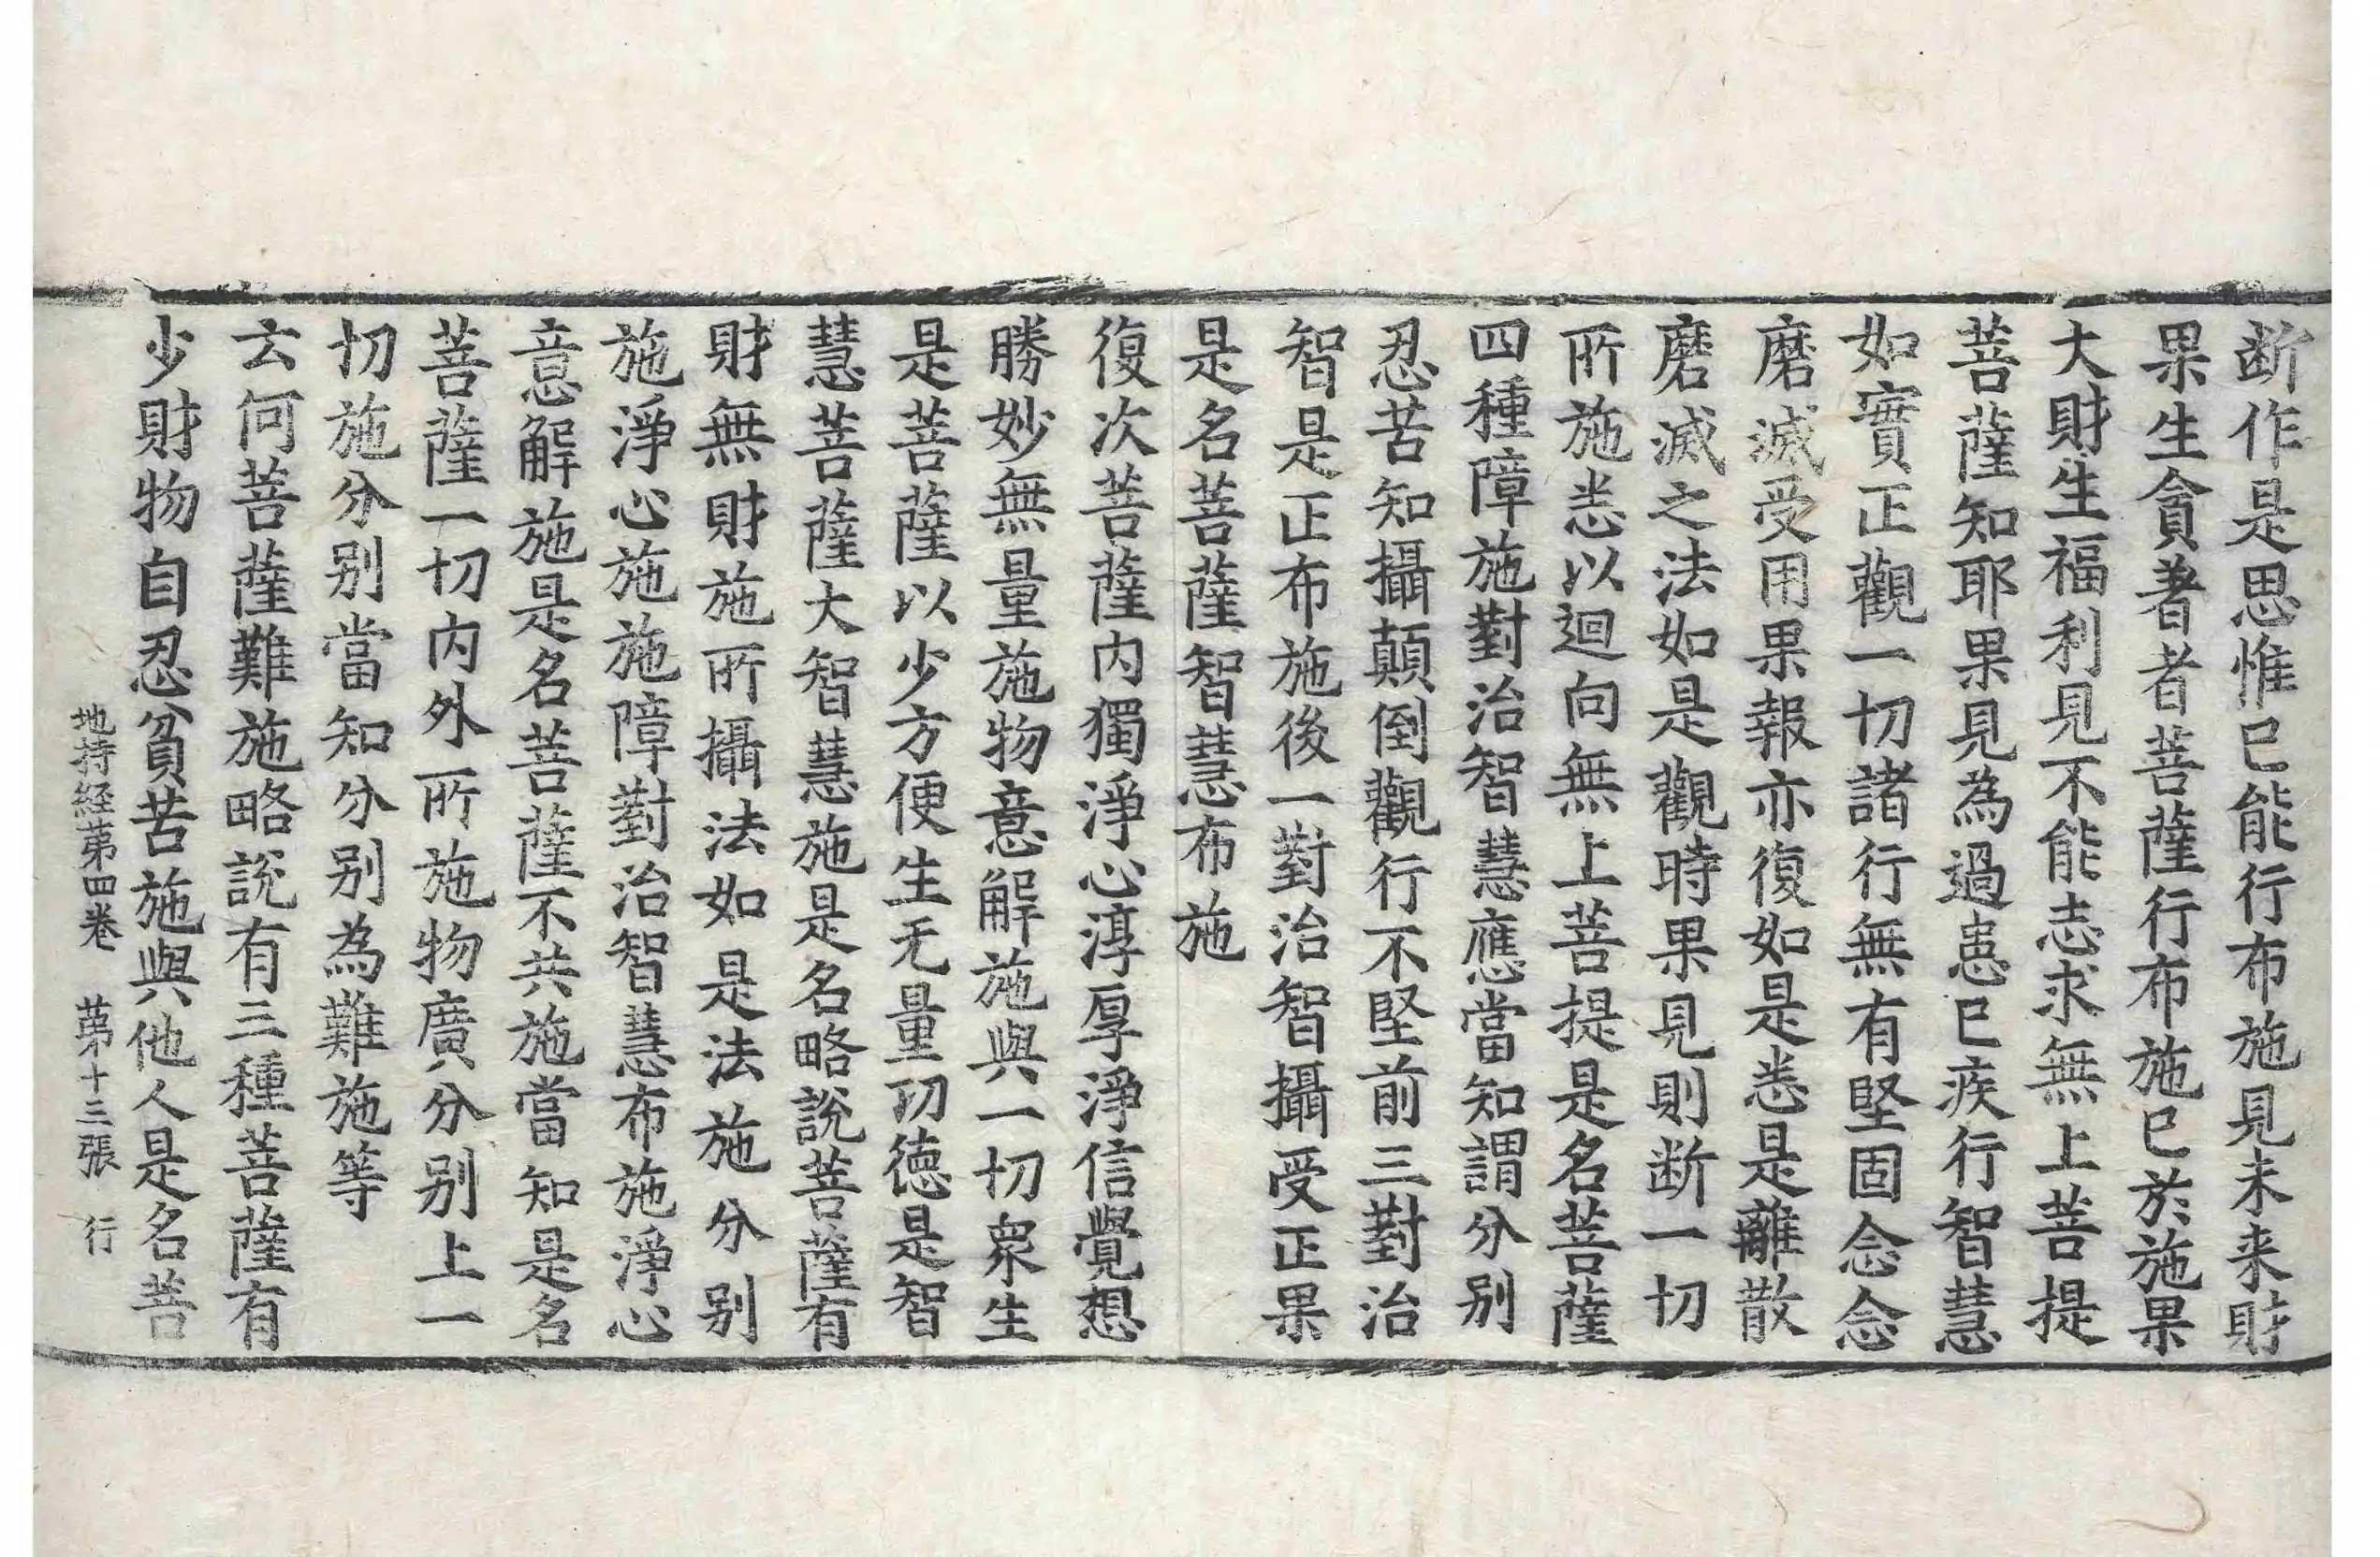 断作是思惟已能行布施見未来財
果生貪著者菩薩行布施已於施果
大財生福利見不能志求無上菩提
菩薩知耶果見為過患已疾行智慧
如實正觀一切諸行無有堅固念念
磨滅受用果報亦復如是悉是離散
磨滅之法如是觀時果見則断一切
所施悉以迴向無上菩提是名菩薩
四種障施對治智慧應當知謂分别
忍苦知攝顛倒觀行不堅前三對治
智是正布施後一對治智攝受正果
是名菩薩智慧布施
復次菩薩内獨淨心淳厚淨信覺想
勝妙無量施物意解施與一切衆生
是菩薩以少方便生无量功德是智
慧菩薩大智慧施是名略說菩薩有
財無財施所攝法如是法施分别
施淨心施施障對治智慧布施淨心
意解施是名菩薩不共施當知是名
菩薩一切内外所施物廣分别上一
切施分别當知分别為難施等
云何菩薩難施略說有三種菩薩有
少財物自忍貧苦施與他人是名菩
地持経第四卷　第十三張　行